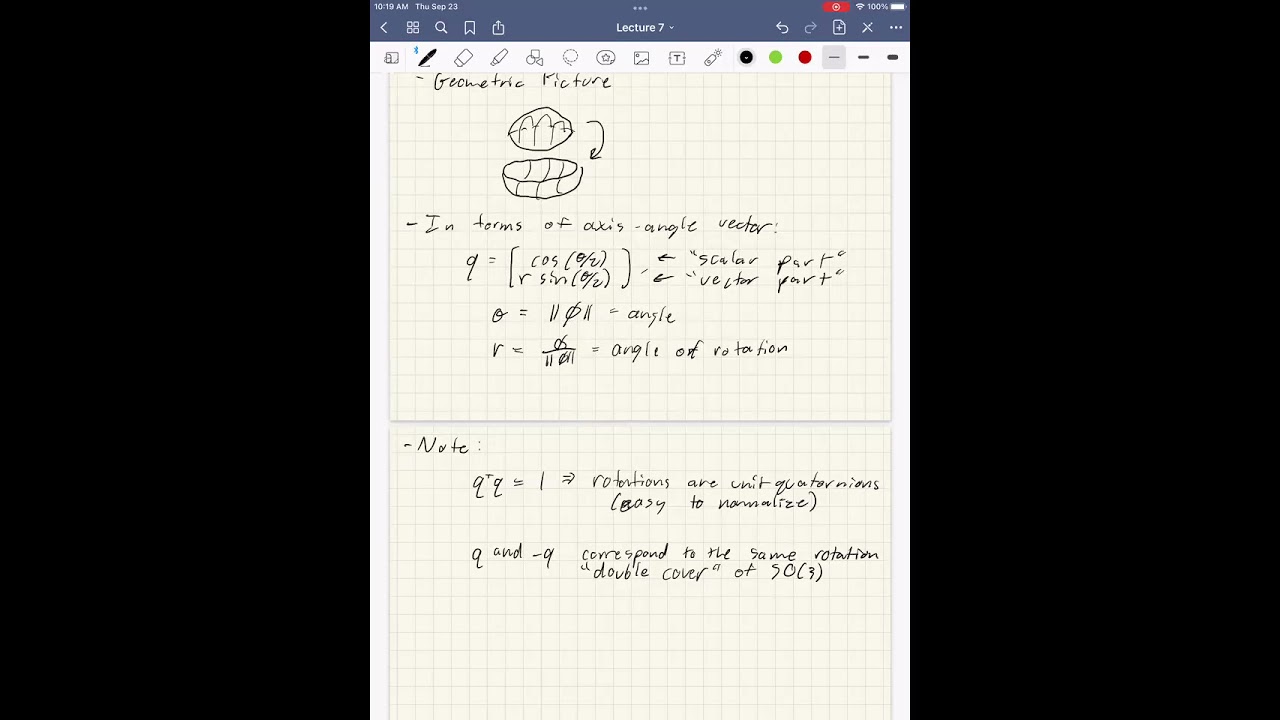 10:19 AM Thu Sep 23
100%
Lecture 7
- Geometric Picture
- In terms of axis-angle vector:
q = [ cos(θ/2) ] ← "scalar part"
[ r sin(θ/2) ] ← "vector part"
θ = ||ϕ|| = angle
r = ϕ/||ϕ|| = angle of rotation
- Note:
qᵀq = 1 ⇒ rotations are unit quaternions
(easy to normalize)
q and -q correspond to the same rotation
"double cover" of SO(3)